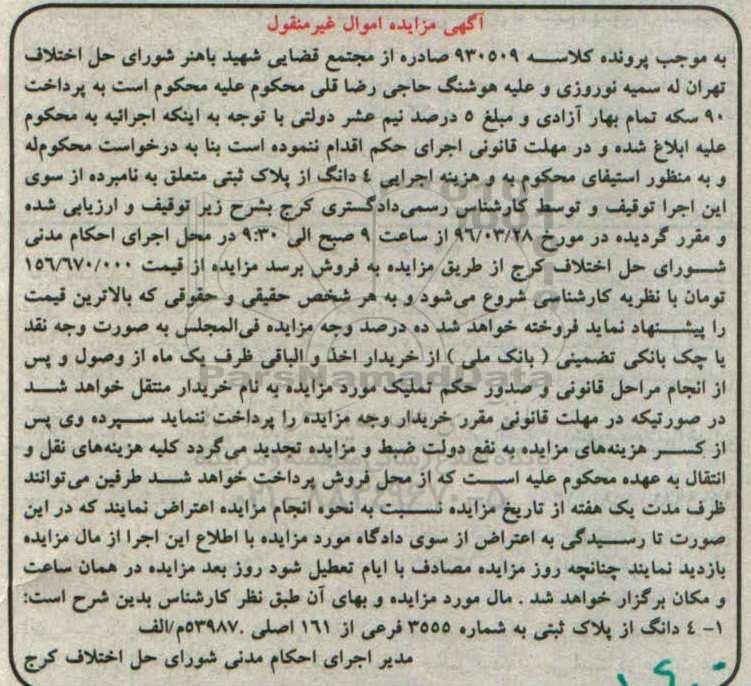 آگهی مزایده اموال غیرمنقول
به موجب پرونده کلاسه ۹۳۰۵۰۹ صادره از مجتمع قضایی شهید باهنر شورای حل اختلاف
تهران له سمیه نوروزی و علیه هوشنگ حاجی رضا قلی محکوم علیه محکوم است به پرداخت
۹۰ سکه تمام بهار آزادی و مبلغ ۵ درصد نیم عشر دولتی با توجه به اینکه اجرائیه به محکوم
علیه ابلاغ شده و در مهلت قانونی اجرای حکم اقدام ننموده است بنا به درخواست محکوم‌له
و به منظور استیفای محکوم به و هزینه اجرایی ۴ دانگ از پلاک ثبتی متعلق به نامبرده از سوی
این اجرا توقیف و توسط کارشناس رسمی‌دادگستری کرج بشرح زیر توقیف و ارزیابی شده
و مقرر گردیده در مورخ ۹۶/۰۳/۲۸ از ساعت ۹ صبح الی ۹:۳۰ در محل اجرای احکام مدنی
شورای حل اختلاف کرج از طریق مزایده به فروش برسد مزایده از قیمت ۱۵۶/۶۷۰/۰۰۰
تومان با نظریه کارشناسی شروع می‌شود و به هر شخص حقیقی و حقوقی که بالاترین قیمت
را پیشنهاد نماید فروخته خواهد شد ده درصد وجه مزایده فی‌المجلس به صورت وجه نقد
یا چک بانکی تضمینی ( بانک ملی ) از خریدار اخذ و الباقی ظرف یک ماه از وصول و پس
از انجام مراحل قانونی و صدور حکم تملیک مورد مزایده به نام خریدار منتقل خواهد شد
در صورتیکه در مهلت قانونی مقرر خریدار وجه مزایده را پرداخت ننماید سپرده وی پس
از کسر هزینه‌های مزایده به نفع دولت ضبط و مزایده تجدید می‌گردد کلیه هزینه‌های نقل و
انتقال به عهده محکوم علیه است که از محل فروش پرداخت خواهد شد طرفین می‌توانند
ظرف مدت یک هفته از تاریخ مزایده نسبت به نحوه انجام مزایده اعتراض نمایند که در این
صورت تا رسیدگی به اعتراض از سوی دادگاه مورد مزایده با اطلاع این اجرا از مال مزایده
بازدید نمایند چنانچه روز مزایده مصادف با ایام تعطیل شود روز بعد مزایده در همان ساعت
و مکان برگزار خواهد شد . مال مورد مزایده و بهای آن طبق نظر کارشناس بدین شرح است:
۱- ۴ دانگ از پلاک ثبتی به شماره ۳۵۵۵ فرعی از ۱۶۱ اصلی .۵۳۹۸۷م/الف
مدیر اجرای احکام مدنی شورای حل اختلاف کرج
ParsNamadData